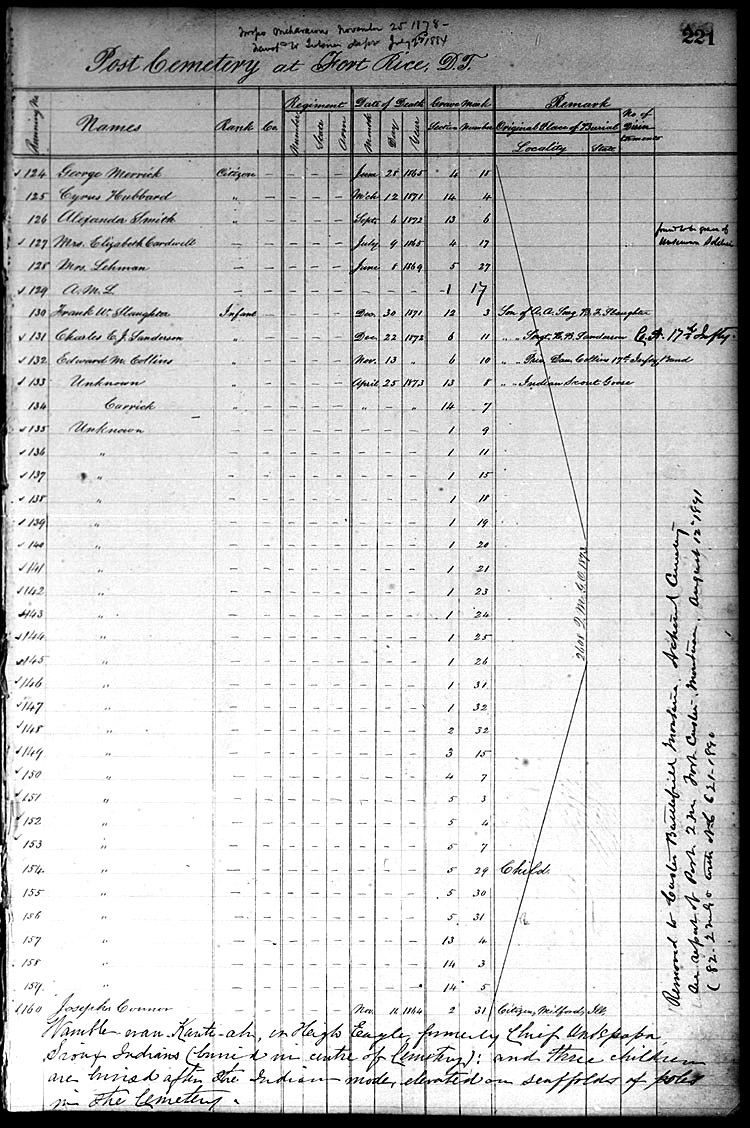 Troops withdrawn November 25 1878 -
to Interior Dept July 1884
221
Post Cemetery at Fort Rice, D.T.
Running No. Names Rank Co. Regiment Date of Death Grave Mark Remark
Number State Arm Month Day Year Section Number Original Place of Burial No. of Disinterments
Locality State
124 George Merrick Citizen — — — — June 28 1865 4 18
125 Cyrus Hubbard " — — — — Mch 12 1871 14 4
126 Alexander Smith " — — — — Sept. 6 1872 13 6
127 Mrs. Elizabeth Cardwell — — — — — July 9 1865 4 17 found to be grave of Unknown Soldier
128 Mrs. Lehman — — — — — June 8 1869 5 27
129 A. M. L. — — — — — — — — 1 17
130 Frank W. Slaughter Infant — — — — Dec. 30 1871 12 3 Son of A. A. Surg. B. F. Slaughter
131 Charles E. J. Sanderson " — — — — Dec. 22 1872 6 11 " " Sergt. H. B. Sanderson Co. A. 17th Infty.
132 Edward M. Collins " — — — — Nov. 13 " 6 10 " " Priv. Sam Collins 17th Infty Band
133 Unknown " — — — — April 25 1873 13 8 " " Indian Scout Goose
134 Carrick — " — — — — " — " 14 7
135 Unknown — — — — — — — — 1 9
136 " — — — — — — — — 1 11
137 " — — — — — — — — 1 15
138 " — — — — — — — — 1 18
139 " — — — — — — — — 1 19
140 " — — — — — — — — 1 20
141 " — — — — — — — — 1 21
142 " — — — — — — — — 1 23
143 " — — — — — — — — 1 24
144 " — — — — — — — — 1 25
145 " — — — — — — — — 1 26
146 " — — — — — — — — 1 31
147 " — — — — — — — — 1 32
148 " — — — — — — — — 2 32
149 " — — — — — — — — 3 15
150 " — — — — — — — — 4 7
151 " — — — — — — — — 5 3
152 " — — — — — — — — 5 4
153 " — — — — — — — — 5 7
154 " — — — — — — — — 5 29 Child.
155 " — — — — — — — — 5 30
156 " — — — — — — — — 5 31
157 " — — — — — — — — 13 4
158 " — — — — — — — — 14 3
159 " — — — — — — — — 14 5
160 Josephus Connor — — — — — Nov. 11 1864 2 31 Citizen, Milford, Ill.
2608 Q.M.G.O. 1873
Removed to Custer Battlefield Montana National Cemetery
as report of Post Q M Fort Custer Montana, August 12" 1891
Wamble-wan-Kante-ah, or High Eagle, formerly Chief Unkpapa,
Sioux Indians (buried in centre of Cemetery); and three children
are buried after the Indian mode, elevated on scaffolds of poles
in the Cemetery.